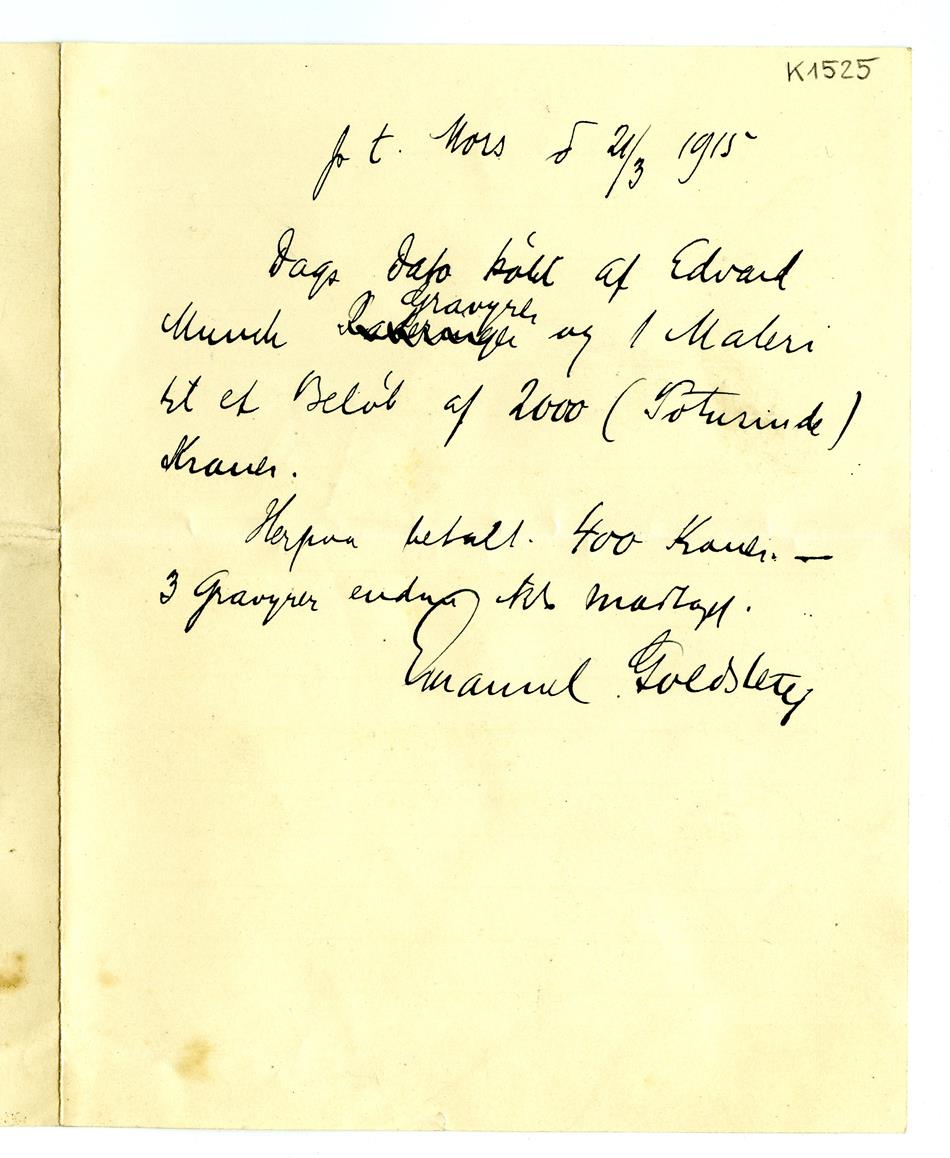 K1525
p t. Moss d 21/3 1915
Dags Dato købt af Edvard
Gravyrer
Munch Raderinger og 1 Maleri
til et Beløb af 2000 (Totusinde)
Kroner.
Herpaa betalt. 400 Kroner. —
3 Gravyrer endnu ikke modtaget.
Emanuel Goldstein